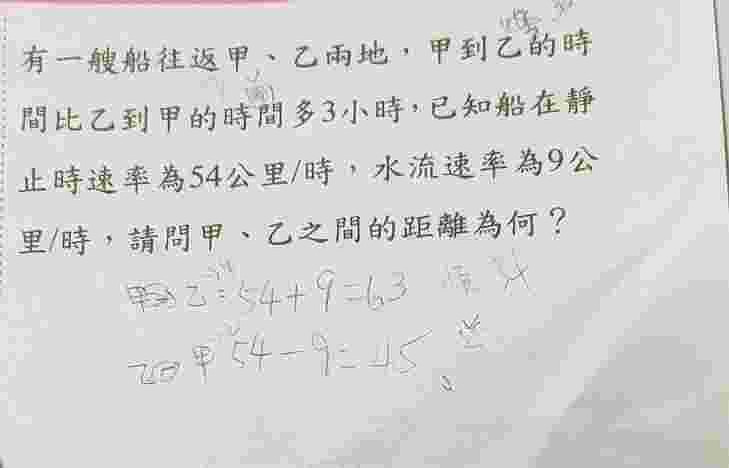 有一艘船往返甲、乙兩地，甲到乙的時
間比乙到甲的時間多3小時，已知船在靜
止時速率為54公里/時，水流速率為9公
里/時，請問甲、乙之間的距離為何？
乙：54+9=63
甲 54-9=45